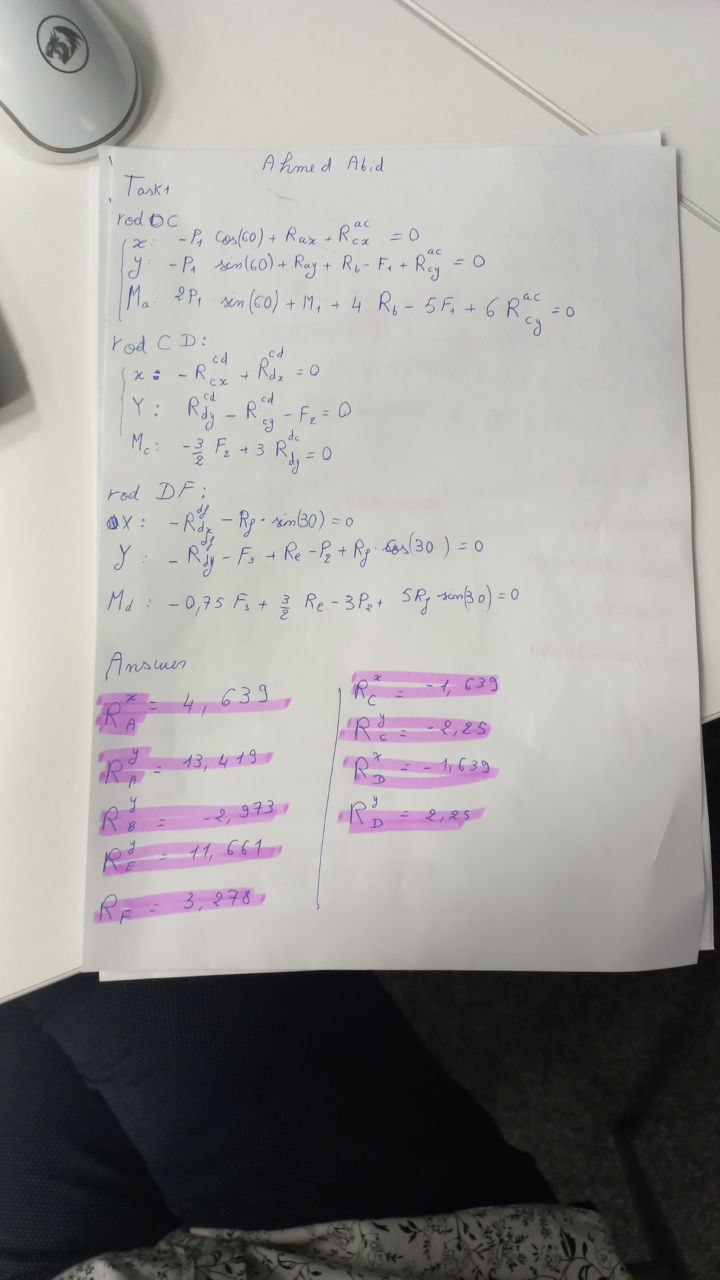 Ahmed Abid
Task1
rod OC
x: -P₁ cos(60) + Rax + R_cx^ac = 0
y: -P₁ sin(60) + Ray + R_b - F₁ + R_cy^ac = 0
M_a: 2P₁ sin(60) + M₁ + 4 R_b - 5F₁ + 6 R_cy^ac = 0
rod CD:
x: - R_cx^cd + R_dx^cd = 0
Y: R_dy^cd - R_cy^cd - F₂ = 0
M_c: -3/2 F₂ + 3 R_dy^dc = 0
rod DF:
X: -R_dx^df - R_f · sin(30) = 0
Y: - R_dy^df - F₃ + R_e - P₂ + R_f · cos(30) = 0
M_d: - 0,75 F₃ + 3/2 R_e - 3P₂ + 5R_f sin(30) = 0
Answer
R_A^x = 4,639
R_A^y = 13,419
R_B^y = -2,973
R_E^y = 11,661
R_F = 3,278
R_C^x = -1,639
R_C^y = -2,25
R_D^x = -1,639
R_D^y = 2,25